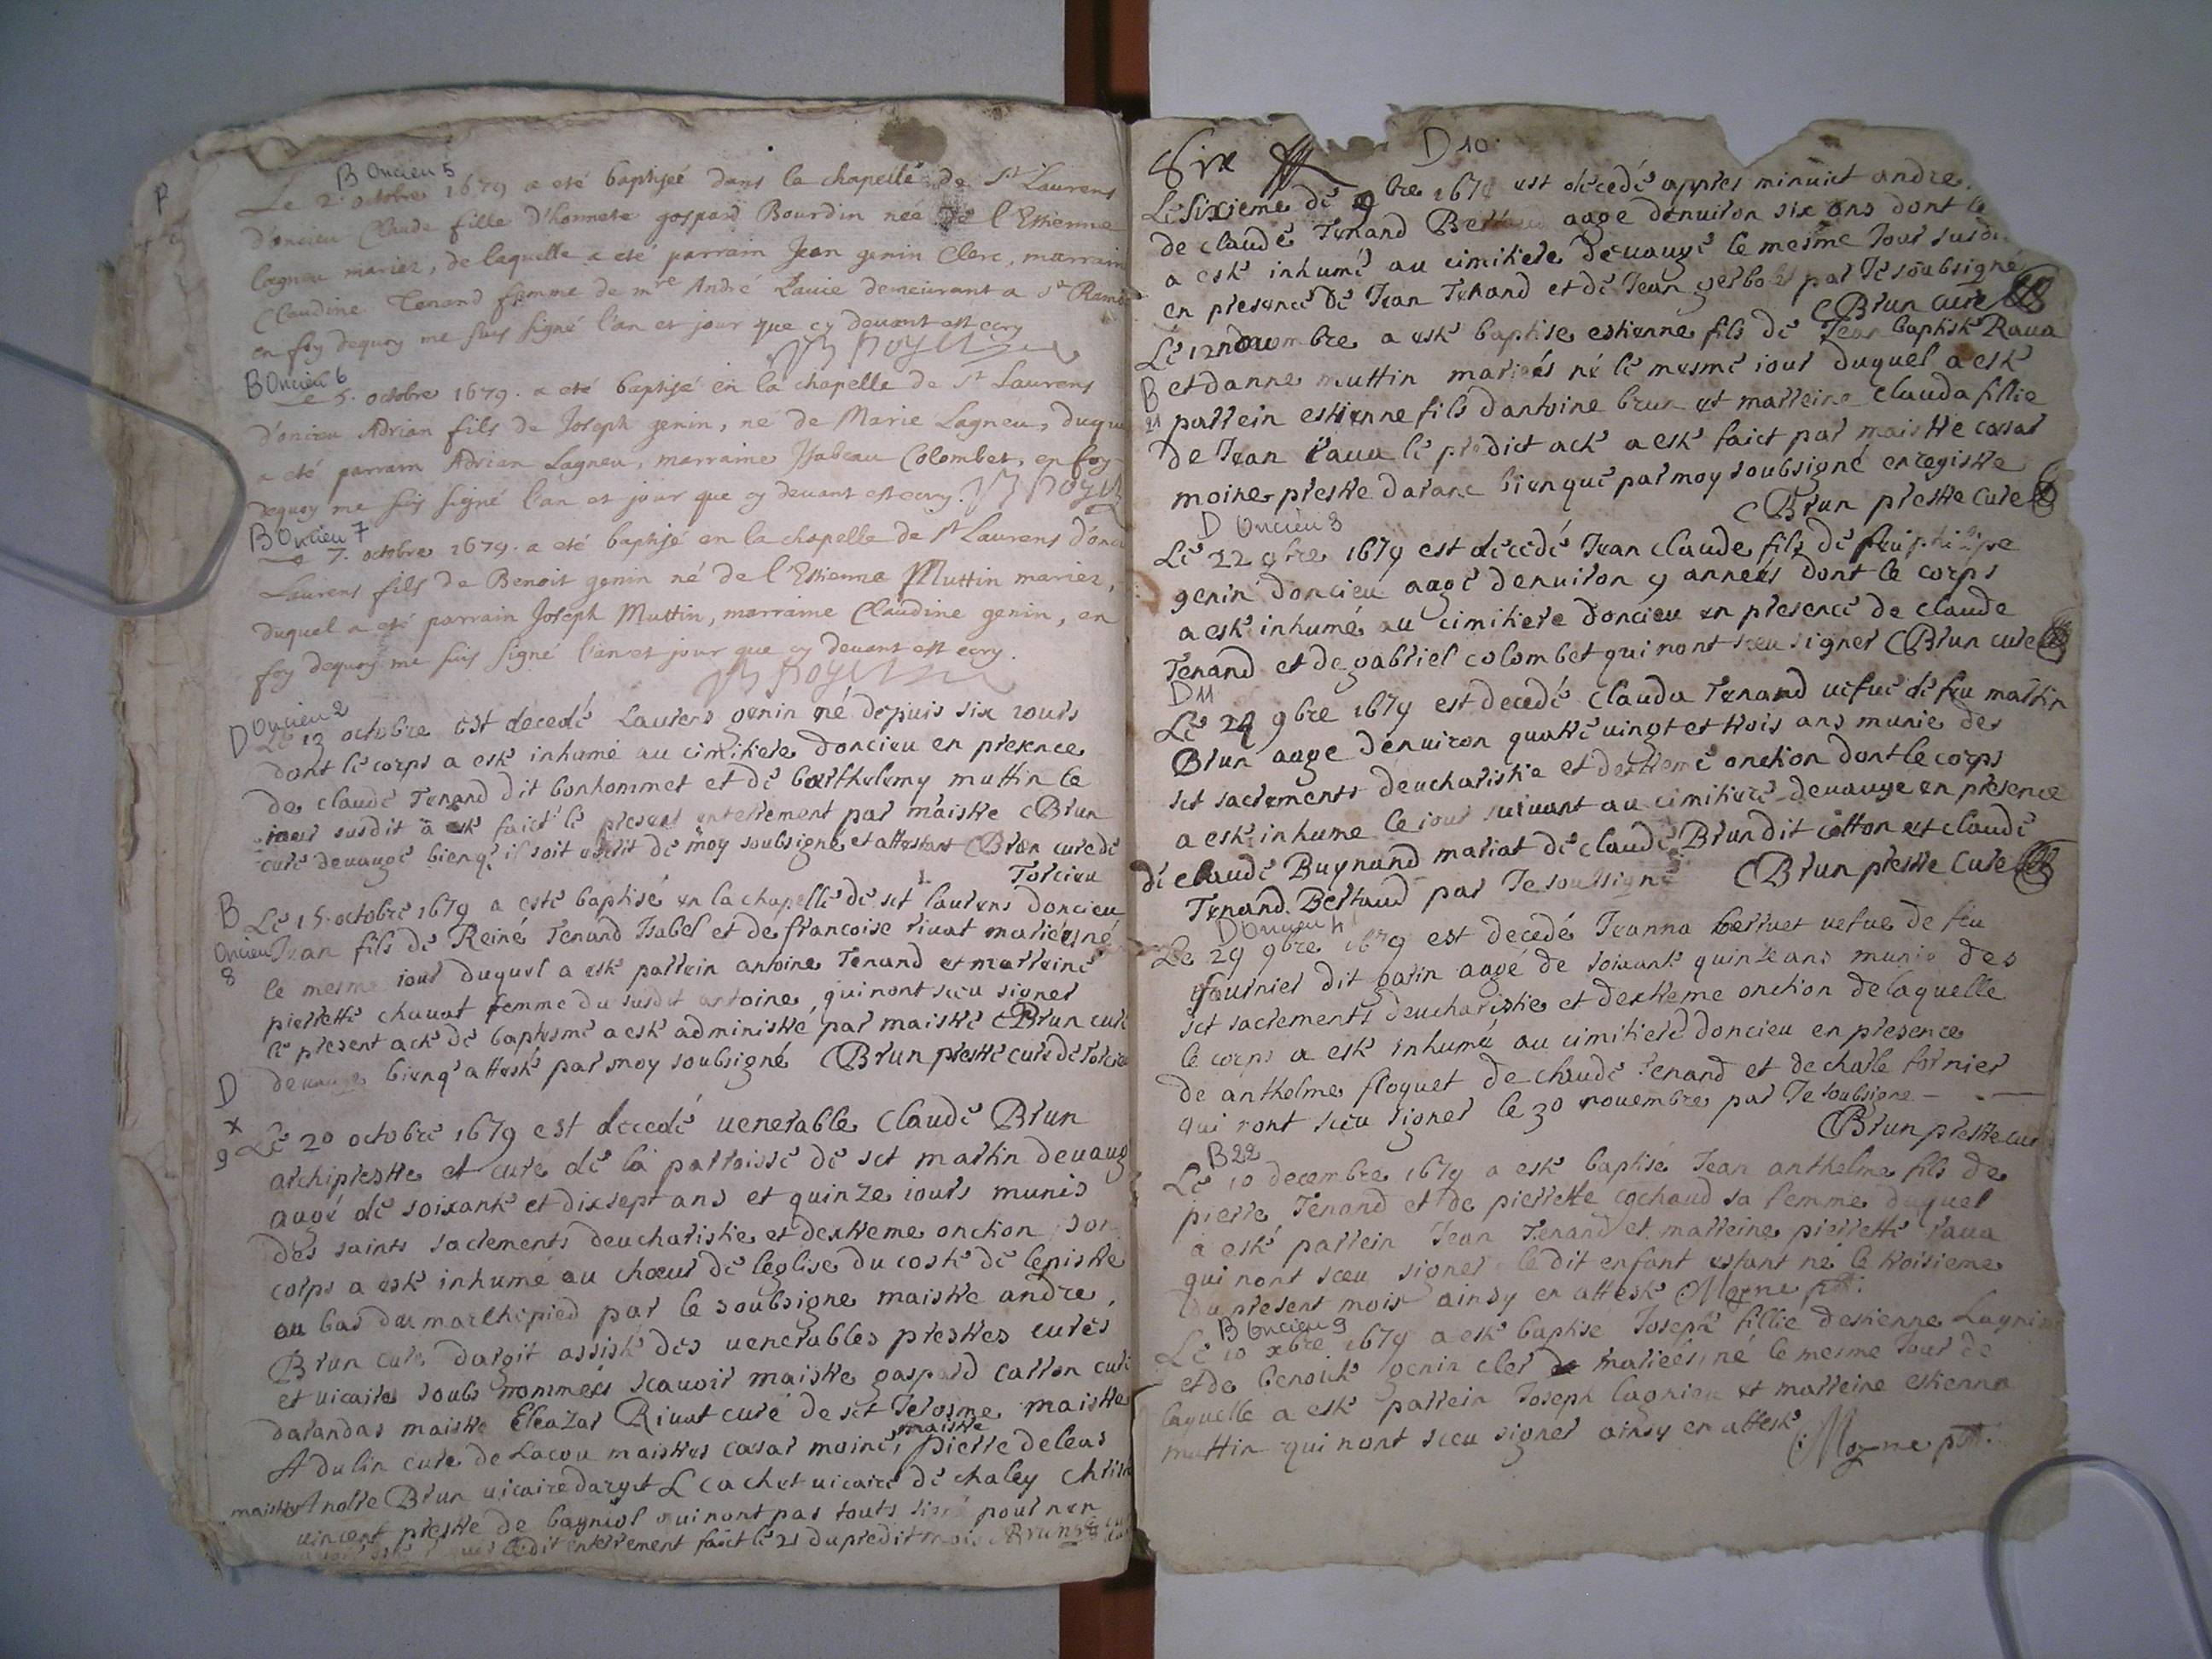 B Oncieu 5
Le 2. octobre 1679 a eté baptiseé dans la chapelle de St Laurens
d'oncieu Claude fille d'honnete gaspard Bourdin neé de l'Estienne
Lagneu mariez, de laquelle a eté parrain Jean genin Clerc, marraine
Claudine Tenand femme de mre André Lauie demeurant a St Ramb
en foy dequoy me suis signé l'an et jour que cy devant est ecry
B Oncieu 6
Le 5. octobre 1679. a eté baptisé en la chapelle de St Laurens
d'oncieu Adrian fils de Joseph genin, né de Marie Lagneu, duque
a eté parrain Adrian Lagneu, marraine Ysabeau Colombet, en foy
dequoy me suis signé l'an et jour que cy devant est ecry.
B Oncieu 7
Le 7. octobre 1679. a eté baptisé en la chapelle de St Laurens d'onci
Laurens fils de Benoit genin né de l'Estienne Muttin mariez,
duquel a eté parrain Joseph Muttin, marraine Claudine genin, en
foy dequoy me suis signé l'an et jour que cy devant est ecry.
D Oncieu 2
Le 13 octobre est decedé Laurens genin né depuis six iours
dont le corps a esté inhumé au cimitiere doncieu en presence
de claude Tenand dit bonhommet et de barthelemy muttin le
iour susdit a esté faict le present enterrement par maistre CBrun
curé devauge bienq' il soit escrit de moy soubsigné et attestant CBrun cure de
Torcieu
B
Le 15. octobre 1679 a esté baptisé en la chapelle de sct laurens doncieu
Oncieu Jean fils de Reiné Tenand Isabel et de francoise rivat mariés né
8 le mesme iour duquel a esté parrein antoine Tenand et marreine
pierrette chavat femme du susdit antoine, qui nont sceu signer
le present acte de baptesme a esté administré par maistre CBrun curé
devauge bienq' attesté par moy soubsigné CBrun prestre curé de Torcieu
D
x
9 Le 20 octobre 1679 est decedé venerable Claude Brun
archiprestre et curé de la parroisse de sct martin devaug
augé de soixante et dixsept ans et quinze iours munis
des saints sacrements deucharistie et dextreme onction son
corps a esté inhumé au chœur de leglise du costé de lepistre
au bas du marchipied par le soubsigne maistre andre
Brun curé dargit assisté des venerables prestres curés
et vicaires soubs nommés scavoir maistre gaspard carron curé
darandas maistre Eleazar Rivat curé de sct Jerosme maistre
Adulin curé de Lacou maistres cesar moine, maistre pierre deleas
maistre Brun vicaire dargit L cachet vicaire de chaley
vincent prestre de qui nont pas touts signé pour nen
ledit enterrement faict le 21 du predit mois
Six
D 10.
Le sixieme de 9bre 167 est décedé appres minuict andre
de claude Tenand Bertaud augé denviron six ans dont le
a esté inhumé au cimitiere devauge le mesme Jour susdi
en presence de Jean Tenand et de Jean gerbo par Je soubsigné
CBrun curé
Le 12 novembre a esté baptise estienne fils de Jean baptiste Rava
B et danne muttin mariés né le mesme iour duquel a esté
21 parrein estienne fils dantoine brun et marreine clauda fillie
de Jean rava le predict acte a esté faict par maistre cesar
moine prestre darane bienque par moy soubsigné enregistre
CBrun prestre Curé
D Oncieu 3
Le 22 9bre 1679 est decedé Jean claude fils de feu phillipe
genin doncieu augé denviron 9 années dont le corps
a esté inhumé au cimitiere doncieu en presence de claude
Tenand et de gabriel colombet qui nont sceu signer CBrun curé
D 11
Le 24 9bre 1679 est decedé clauda Tenand vefue de feu martin
Brun augé denviron quatre vingt et trois ans munie des
sct sacrements deucharistie et dextreme onction dont le corps
a esté inhume le iour suivant au cimitiere devauge en presence
de claude Buynand mariat de claude Brun dit cotton et claude
Tenand Bertaud par Je soussigné CBrun prestre Curé
D Oncieu 4
Le 29 9bre 1679 est decedé Jeanna berruet vefue de feu
fournier dit patin augé de soixante quinze ans munie des
sct sacrements deucharistie et dextreme onction de laquelle
le corps a esté inhumé au cimitiere doncieu en presence
de anthelme floquet de claude Tenand et de charle fornier
qui nont sceu signer le 30 novembre par Je soubsigne
CBrun prestre cur
B 22
Le 10 decembre 1679 a esté baptise Jean anthelme fils de
pierre Tenand et de pierrette cochaud sa femme duquel
a esté parrein Jean Tenand et marreine pierrette rava
qui nont sceu signer ledit enfant estant né le troisieme
du present mois ainsy en atteste Moyne ptre.
B Oncieu 9
Le 10 xbre 1679 a esté baptise Joseph fillie destienne Lagnieu
et de benoicte genin clet mariés, né le mesme Jour de
laquelle a esté parrein Joseph lagnieu et marreine estienna
muttin qui nont sceu signer ainsy en atteste Moyne ptre.